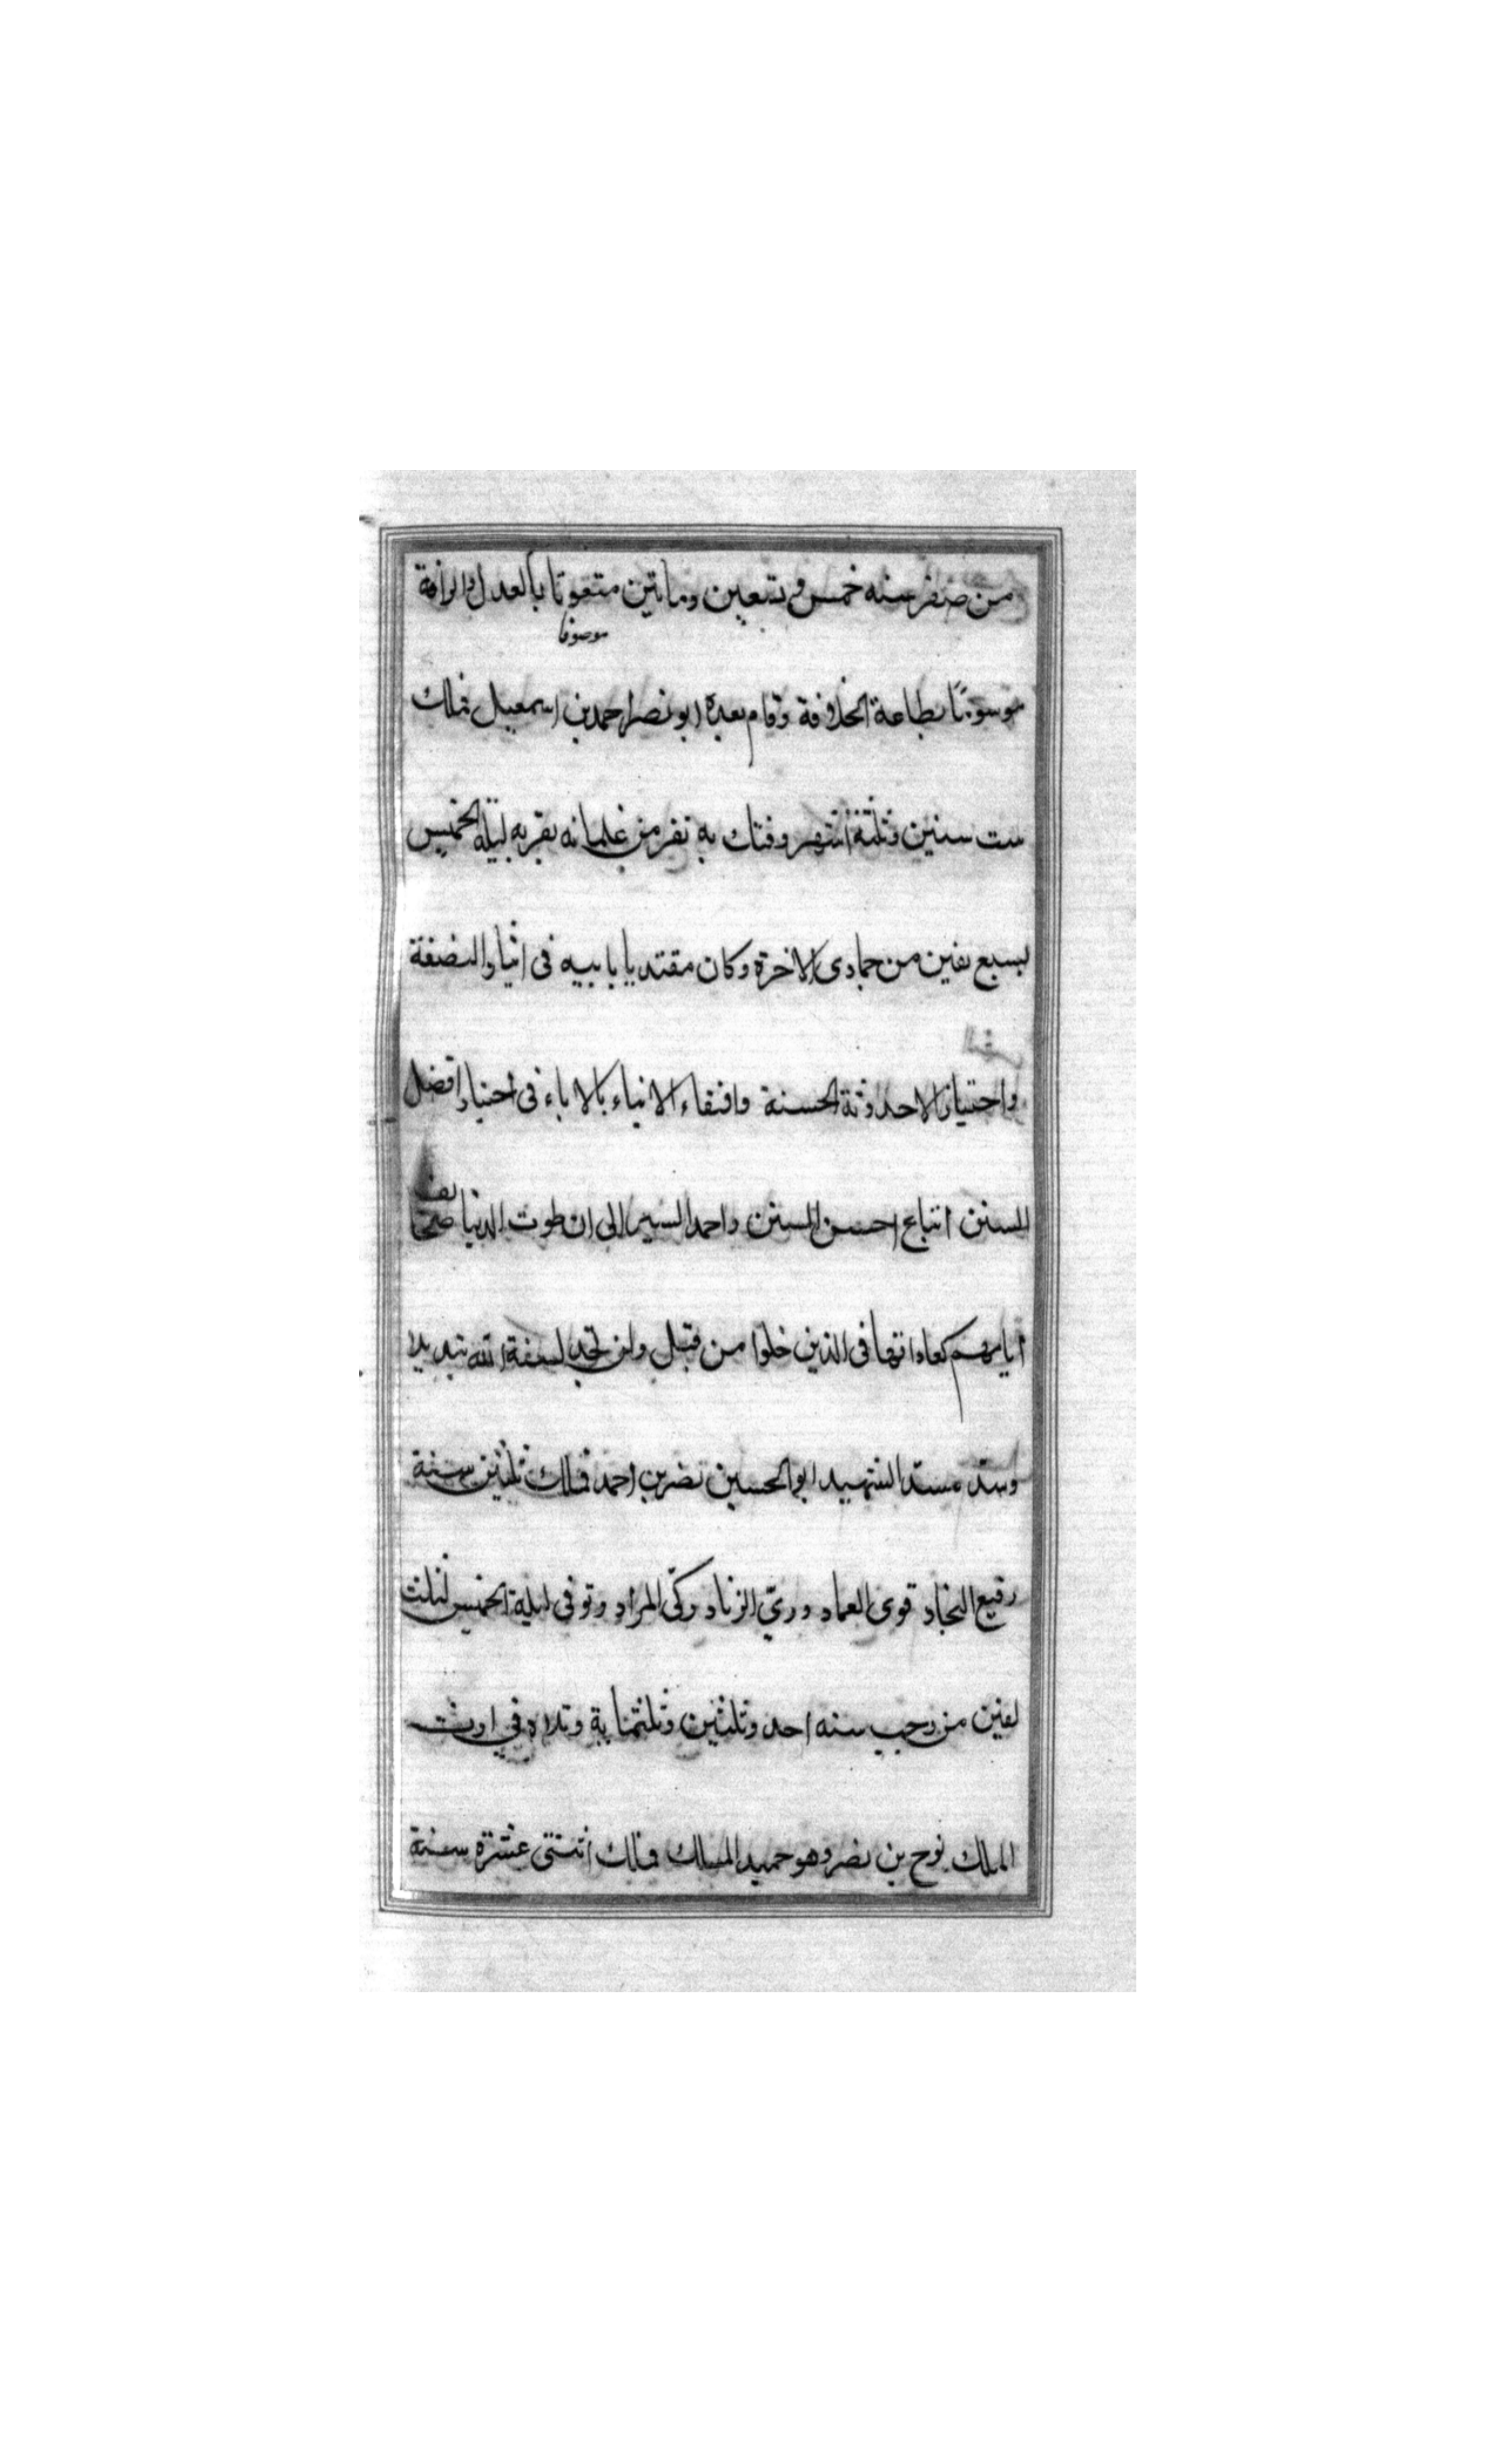 من صفر سنه خمس و تسعين وماتين متعوتا بالعدل والرافة
موصوفا
موسومًا بطاعة الخلافة وقام بعده ابو نصر احمد بن اسمعيل فملك
ست سنين وثلثة اشهر وفتك به نفر من غلمانه بفربه ليلة الخميس
لسبع بقين من جمادى الاخرة وكان مقتديا بابيه فى اثيار النصفة
واختيار الاحدوثة الحسنة واقتفاء الابناء بالاباء فى اختيار افضل
السنن اتباع احسن السنن واحمد السير الى ان طوت الدنيا صحايف
ايامهم كعاداتها فى الذين خلوا من قبل ولن تجد لسنة الله تبديلا
وسد مسد الشهيد ابو الحسين نصر بن احمد فملك ثلثين سنة
رفيع النجاد قوى العماد ورىّ الزناد زكىّ المراد وتوفى ليلة الخميس لثلث
بقين من رجب سنه احد وثلثين وثلثماية وتلاه فى ارث
الملك نوح بن نصر وهو حميد الملك فملك اثنتى عشرة سنة